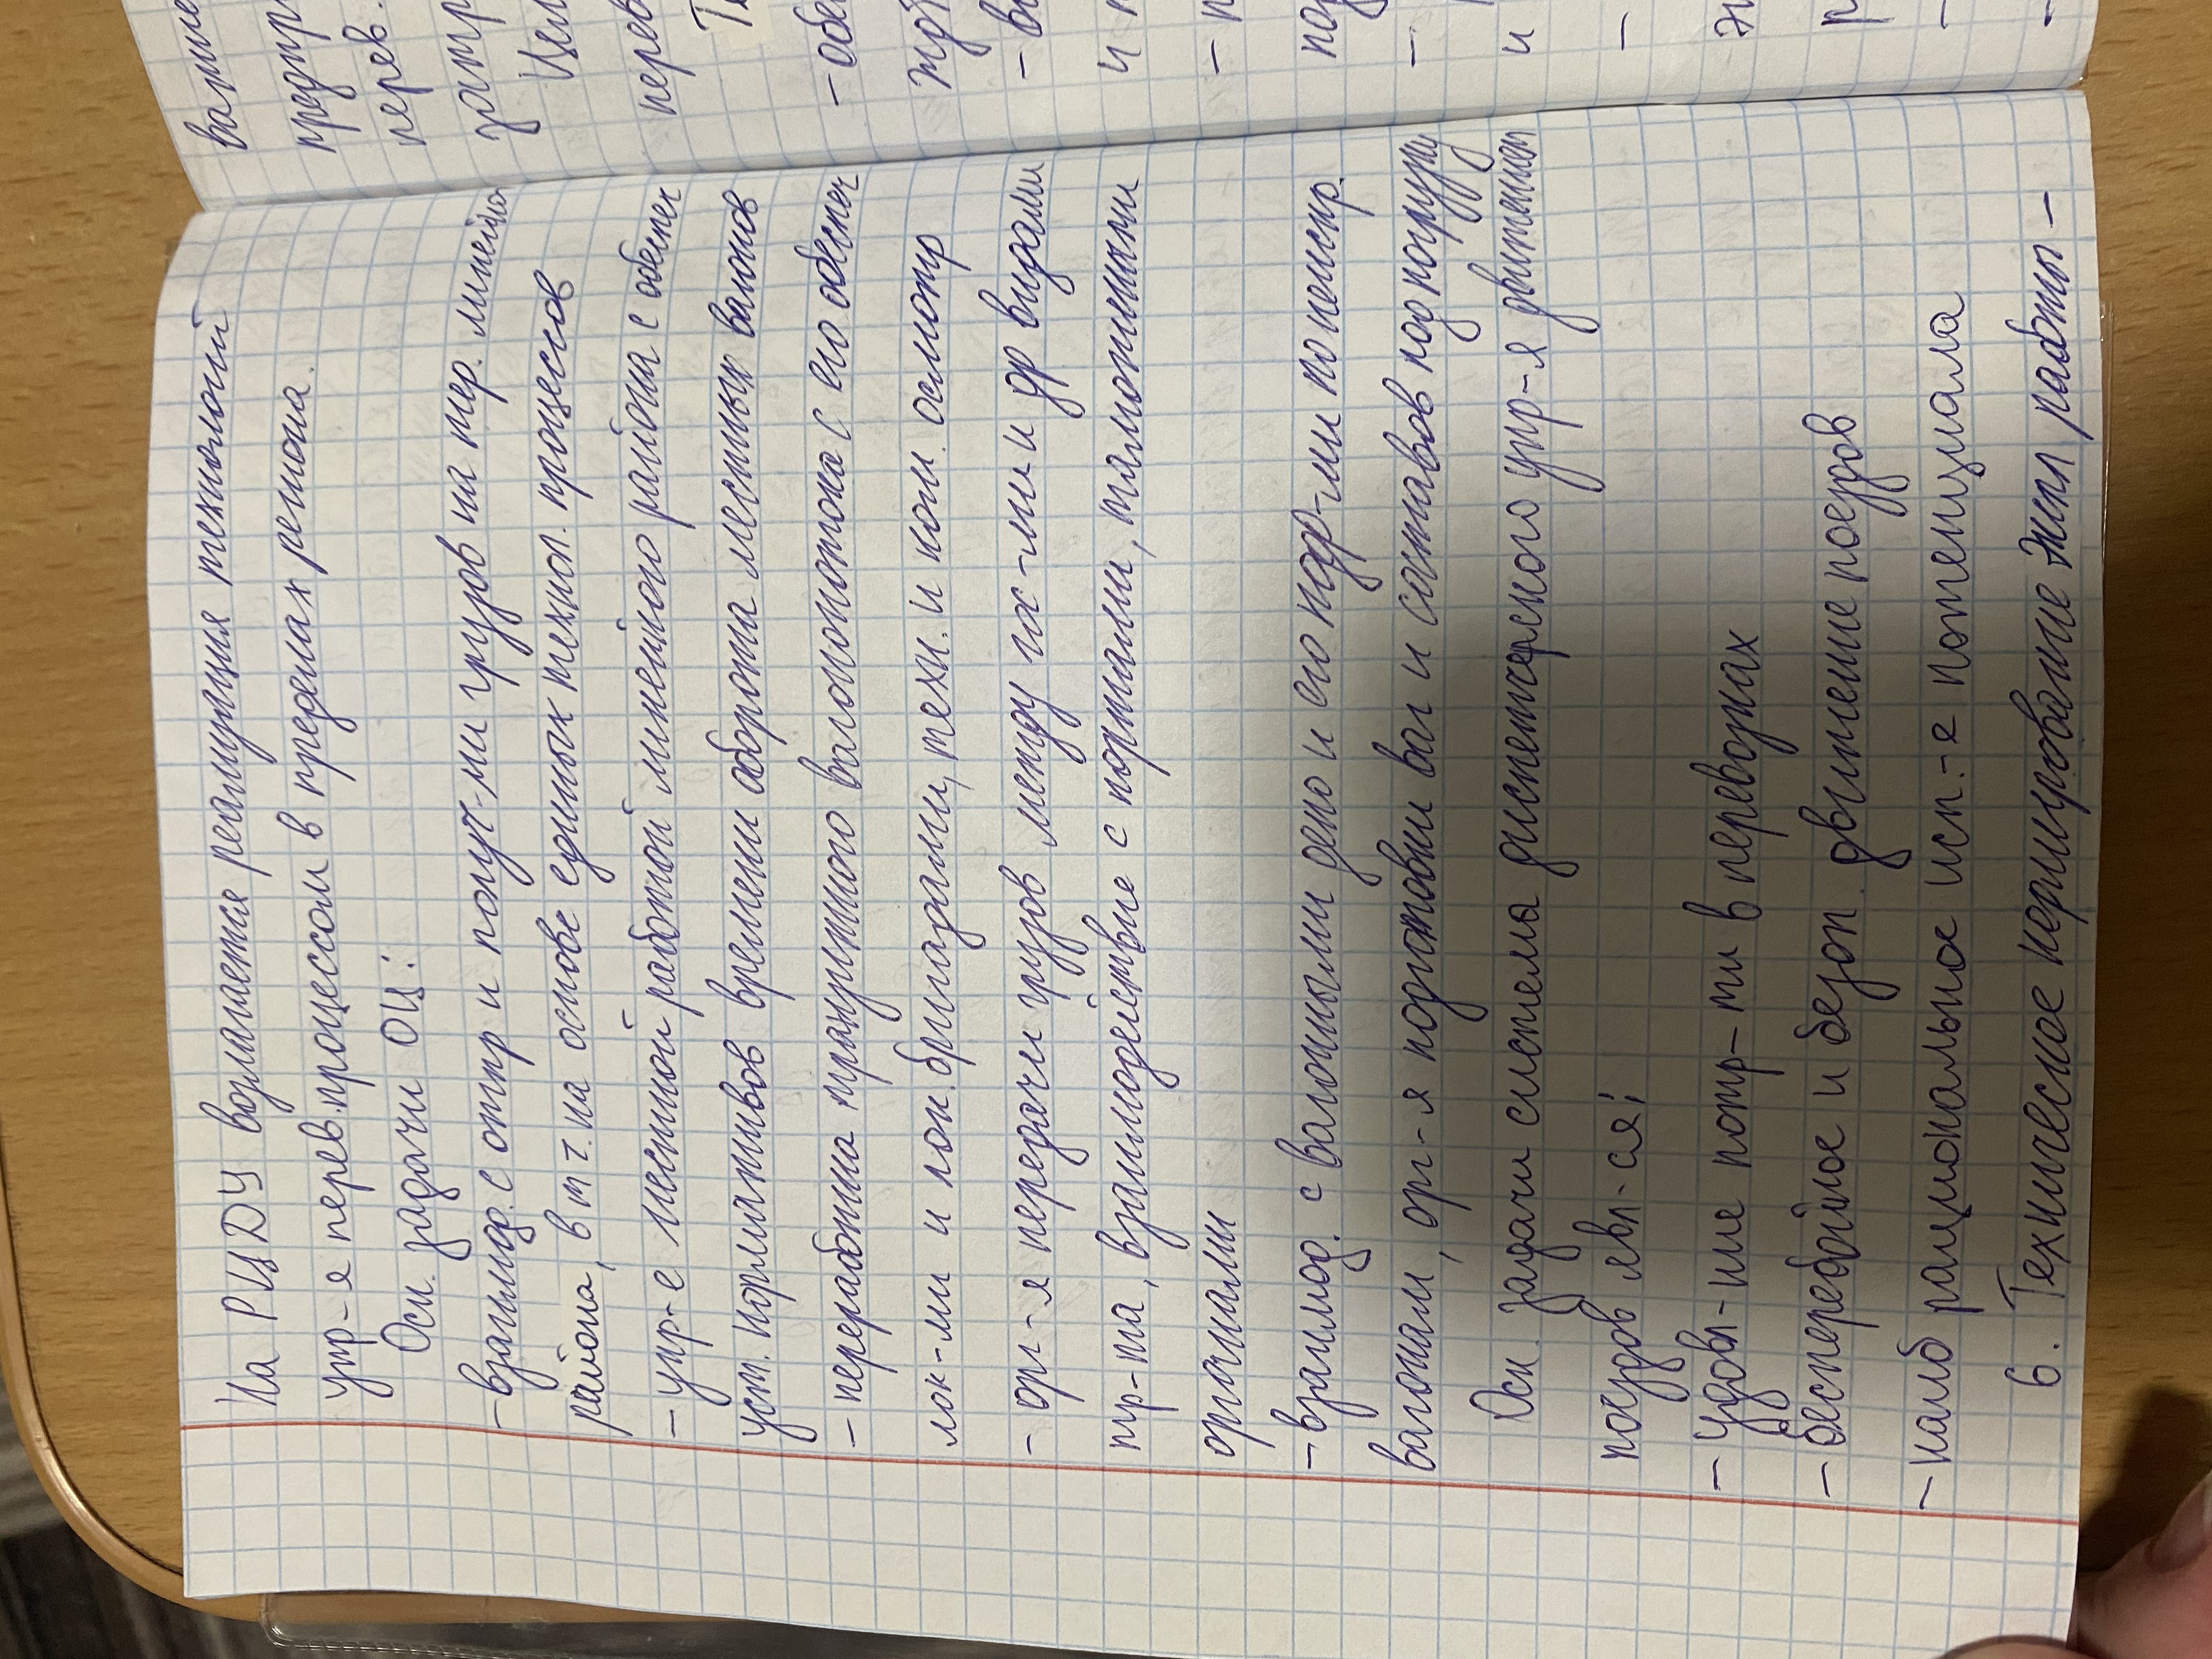 На РЦДУ возлагается реализация технологий
упр-я перев. процессом в пределах региона.
Осн. задачи ОЦ:
- взаимод. с отпр и получ-ми грузов на тер. линейно
района, в т ч. на основе единых технол. процессов
- упр-е местной работой линейного района с обеспеч
уст. нормативов времени оборота местных вагонов
- переработка транзитного вагонопотока с его обеспеч
лок-ми и лок. бригадами, техн. и ком. осмотр
- орг-я передачи грузов между гос-ми и др видами
тр-та, взаимодействие с портами, таможенными
органами
- взаимод. с вагонными депо и его под-ми по
вагонам, орг-я подготовки ваг и составов под погрузку
Осн. задачи система диспетчерского упр-я движением
поездов явл-ся;
- удовл-ние потр-ти в перевозках
- бесперебойное и безоп. движение поездов
- наиб рациональное исп-е потенциала
6. Техническое нормирование экпл работы -
перев.
- обе
и п
- п
и
-
-
-